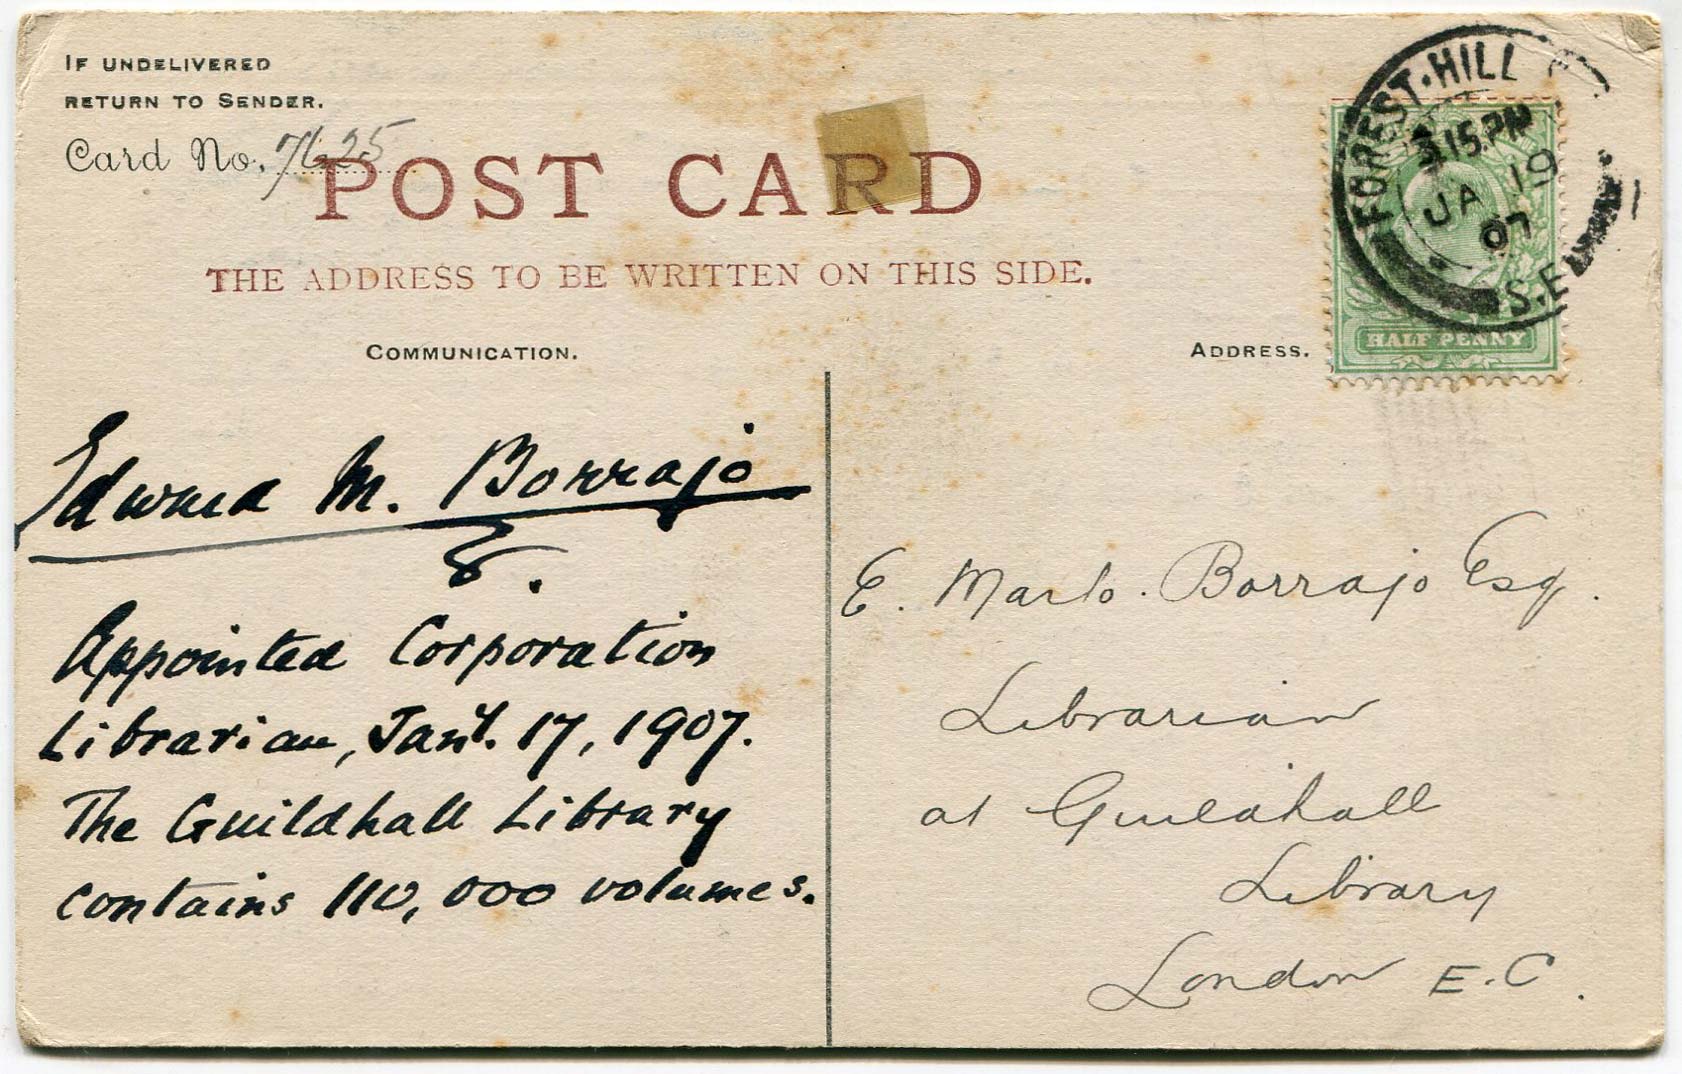 IF UNDELIVERED
RETURN TO SENDER.
Card No. 7625
POST CARD
THE ADDRESS TO BE WRITTEN ON THIS SIDE.
COMMUNICATION.
ADDRESS.
FOREST·HILL
3.15.PM
JA 19
07
S.E.
HALF PENNY
Edward M. Borrajo
Appointed Corporation
Librarian, Jany. 17, 1907.
The Guildhall Library
contains 110,000 volumes.
E. Marto. Borrajo Esq.
Librarian
at Guildhall
Library
London E.C.